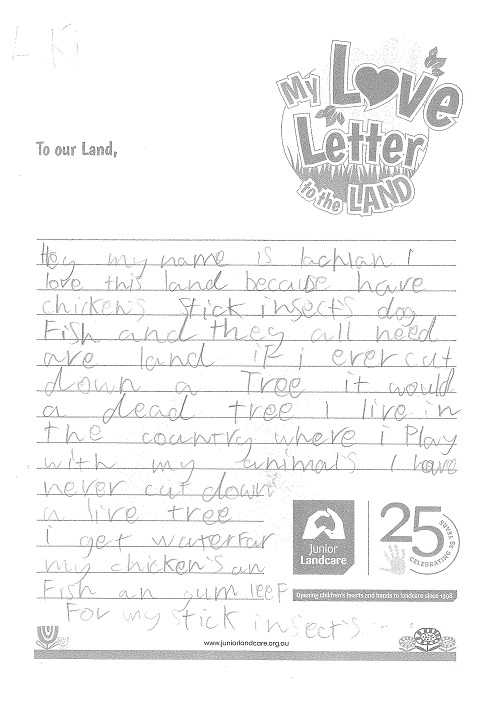 My Love
Letter
to the LAND
To our Land,
Hey my name is lachlan I
love this land because have
chicken's stick insect's dog
Fish and they all need
are land if i ever cut
down a Tree it would
a dead tree I live in
the country where i Play
with my animals I have
never cut down
a live tree
i get water far
my chicken's an
Fish an gum leef
For my stick insect's
Junior
Landcare
25
CELEBRATING 25 YEARS
Opening children's hearts and hands to landcare since 1998
www.juniorlandcare.org.au